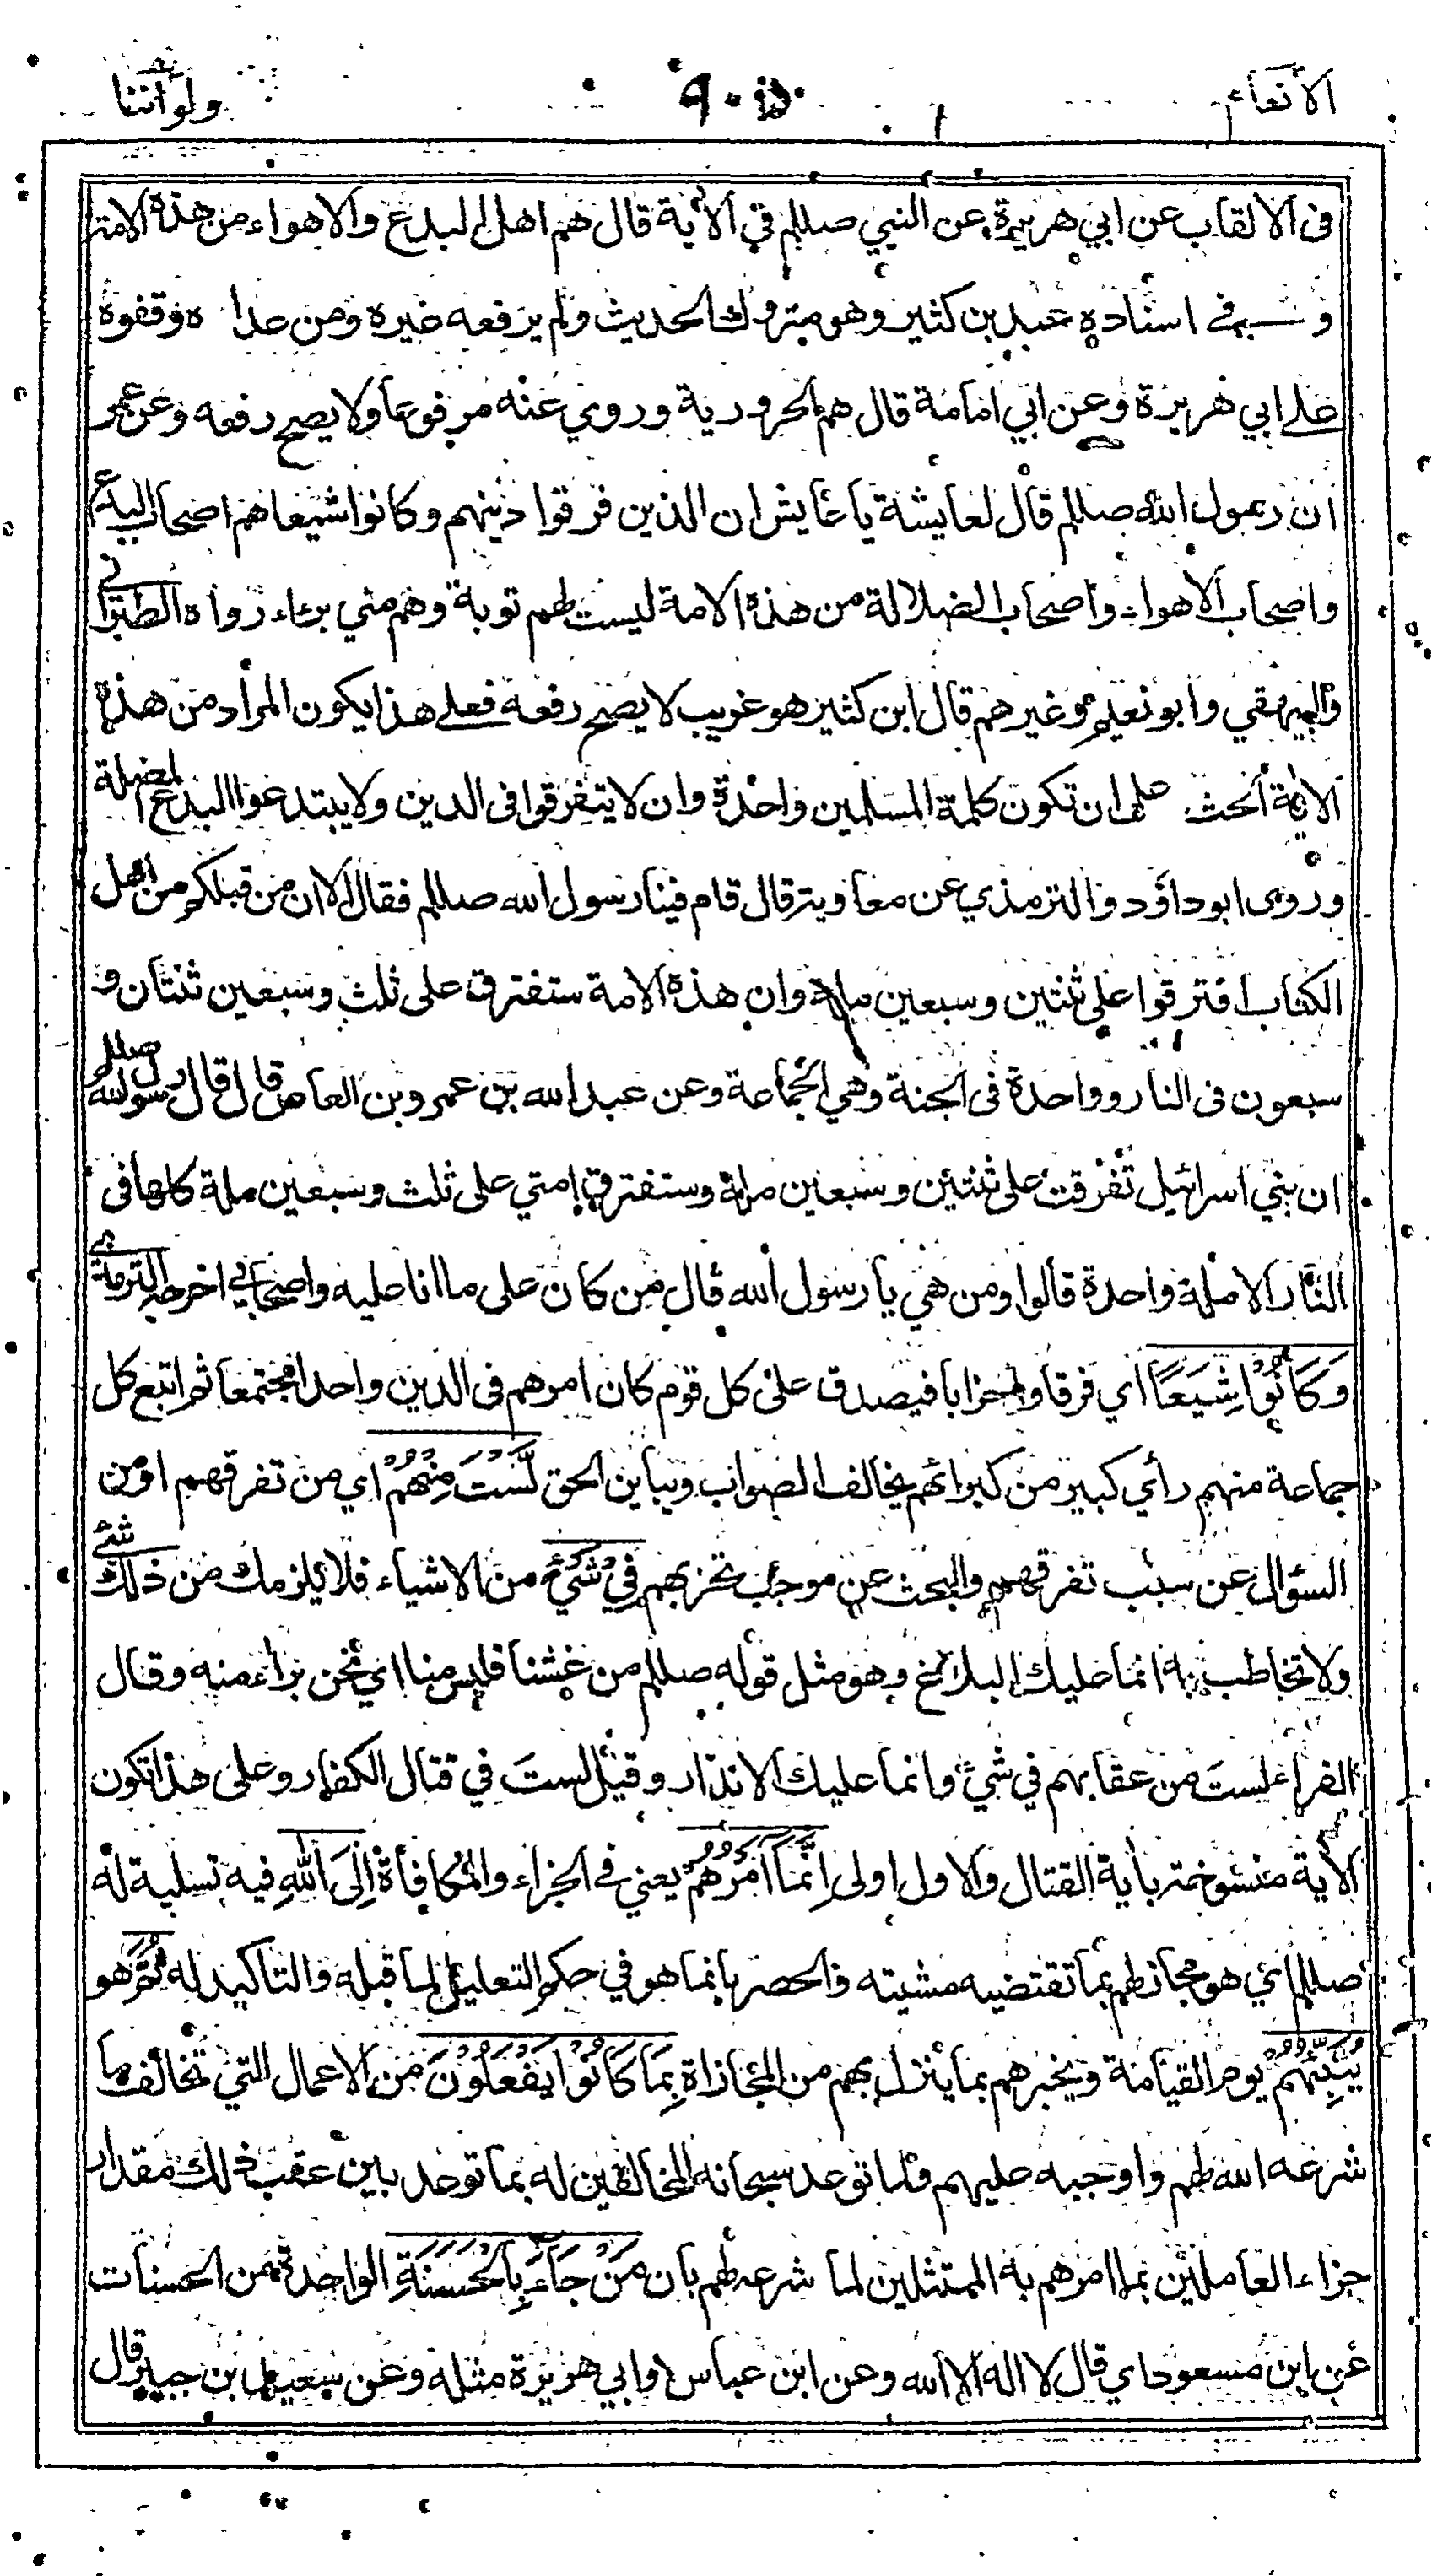 الانعام ٩٠٥ ولواننا
فى الالقاب عن ابي هريرة عن النبي صللم في الاية قال هم اهل البدع والاهواء من هذه الامة
و في اسناده عبد بن كثير وهو متروك الحديث ولم يرفعه غيره ومن عداه وقفوه
على ابي هريرة وعن ابي امامة قال هم الحرورية وروي عنه مرفوعا ولا يصح رفعه وعن عمر
ان رسول الله صللم قال لعايشة يا عايش ان الذين فرقوا دينهم وكانوا شيعا هم اصحاب البدع
واصحاب الاهواء واصحاب الضلالة من هذه الامة ليست لهم توبة وهم مني برءاء رواه الطبراني
والبيهقي وابو نعيم وغيرهم قال ابن كثير هو غريب لا يصح رفعه فعلى هذا يكون المراد من هذه
الاية الحث على ان تكون كلمة المسلمين واحدة وان لا يتفرقوا فى الدين ولا يبتدعوا البدع المضلة
وروى ابو داؤد والترمذي عن معاوية قال قام فينا رسول الله صللم فقال الا ان من قبلكم من اهل
الكتاب افترقوا على ثنتين وسبعين ملة وان هذه الامة ستفترق على ثلث وسبعين ثنتان و
سبعون فى النار وواحدة فى الجنة وهي الجماعة وعن عبد الله بن عمرو بن العاص قال قال رسول الله صللم
ان بني اسرائيل تفرقت على ثنتين وسبعين ملة وستفترق امتي على ثلث وسبعين ملة كلها فى
النار الا ملة واحدة قالوا ومن هي يا رسول الله قال من كان على ما انا عليه واصحابي اخرجه الترمذي
وَكَانُوْا شِيَعًا اي فرقا واحزابا فيصدق على كل قوم كان امرهم فى الدين واحدا مجتمعا ثم اتبع كل
جماعة منهم رأي كبير من كبرائهم يخالف الصواب ويباين الحق لَسْتَ مِنْهُمْ اي من تفرقهم او من
السؤال عن سبب تفرقهم والبحث عن موجب تحزبهم فِيْ شَيْءٍ من الاشياء فلا يلزمك من ذلك شئ
ولا تخاطب به انما عليك البلاغ وهو مثل قوله صللم من غشنا فليس منا اي نحن براء منه وقال
الفراء لستَ من عقابهم في شيء وانما عليك الانذار وقيل لستَ في قتال الكفار وعلى هذا تكون
الاية منسوخة باية القتال والاول اولى اِنَّمَا اَمْرُهُمْ يعني في الجزاء والمكافأة اِلَى اللهِ فيه تسلية له
صللم اي هو مجاز لهم بما تقتضيه مشيته والحصر بانما هو في حكم التعليل لما قبله والتاكيد له ثُمَّ هو
يُنَبِّئُهُمْ يوم القيامة ويخبرهم بما ينزل بهم من المجازاة بِمَا كَانُوْا يَفْعَلُوْنَ من الاعمال التي تخالف ما
شرعه الله لهم واوجبه عليهم ولما توعد سبحانه المخالفين له بما توعد بين عقب ذلك مقدار
جزاء العاملين بما امرهم به الممتثلين لما شرعه لهم بان مَنْ جَاءَ بِالْحَسَنَةِ الواحدة من الحسنات
عن ابن مسعود اي قال لا اله الا الله وعن ابن عباس وابي هريرة مثله وعن سعيد بن جبير قال